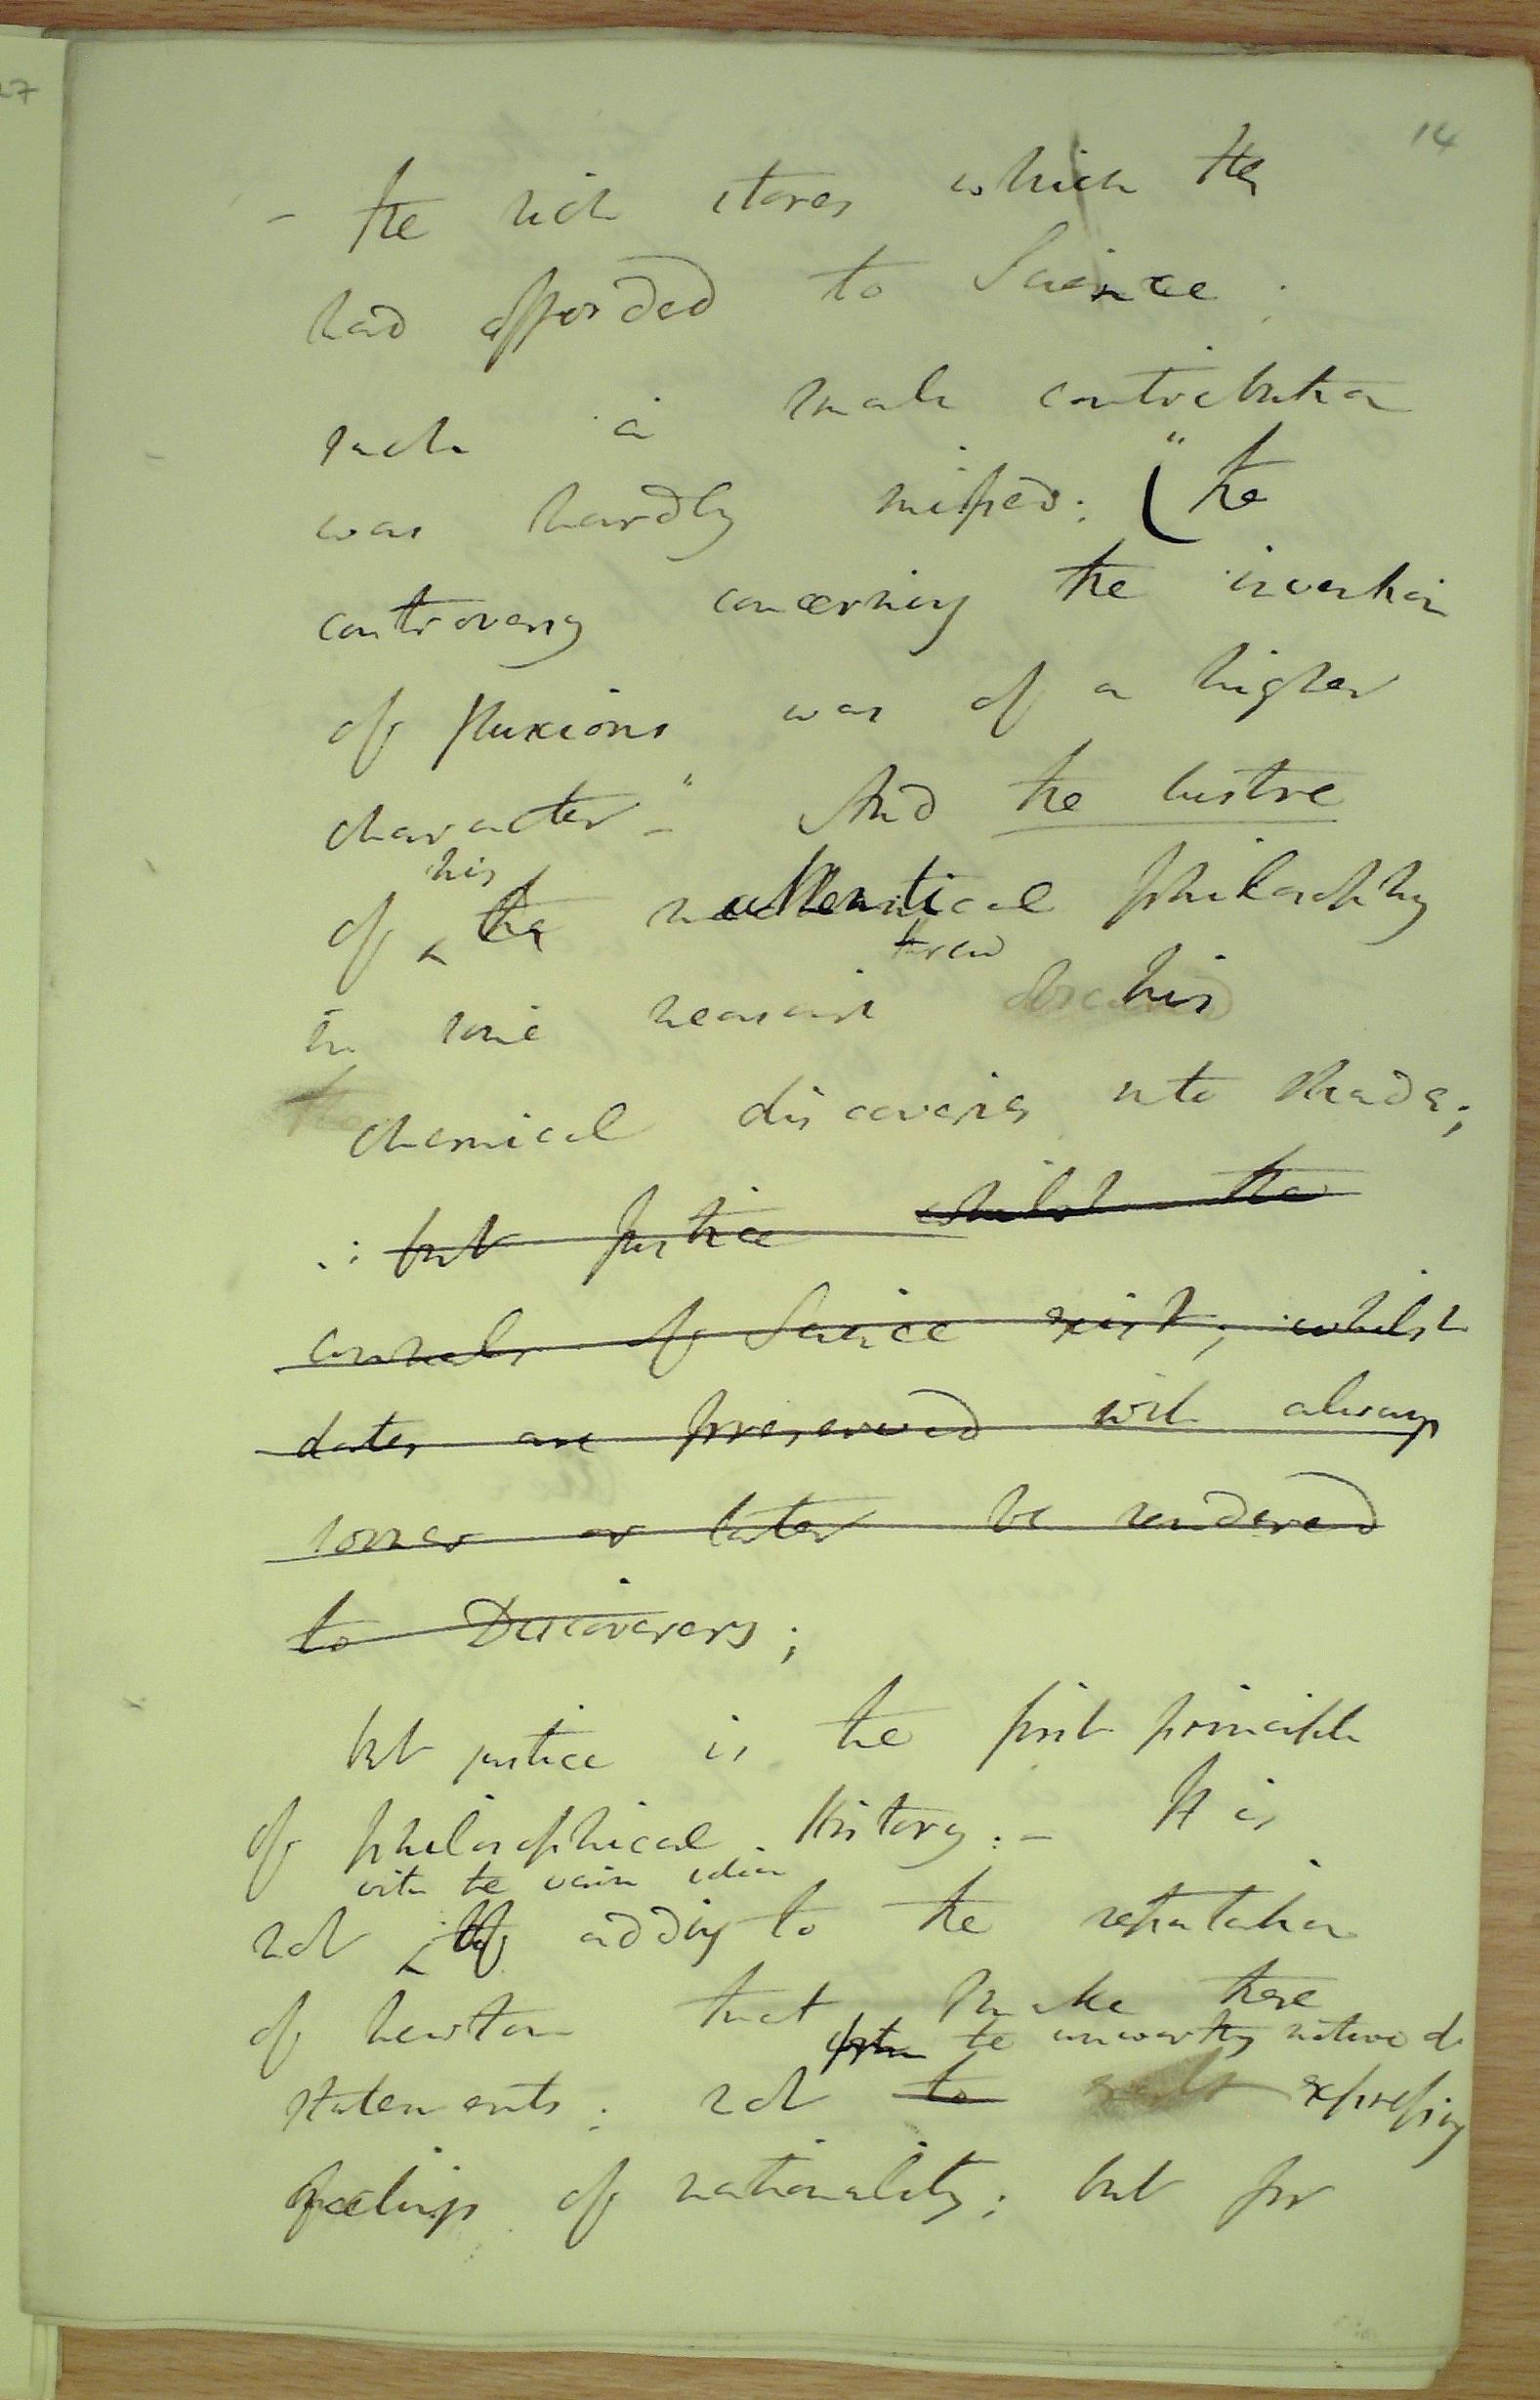 14
- the rich stores which they
had afforded to Science.
such a small contribution
was hardly missed: ( "the
controversy concerning the invention
of fluxions was of a higher
character -" And the lustre
his
of ^ the mathematical philosophy
threw
in some measure his
chemical discoveries into shade;
: but justice whilst the
annals of Science exist; whilst
dates are preserved will always
sooner or later be rendered
to Discoverers;
but justice is the first principle
of philosophical History. - It is
with the vain idea
not ^ of adding to the reputation
of Newton that I make these
the unworthy motive of
statements; not to expressing
feelings of nationality; but for
27